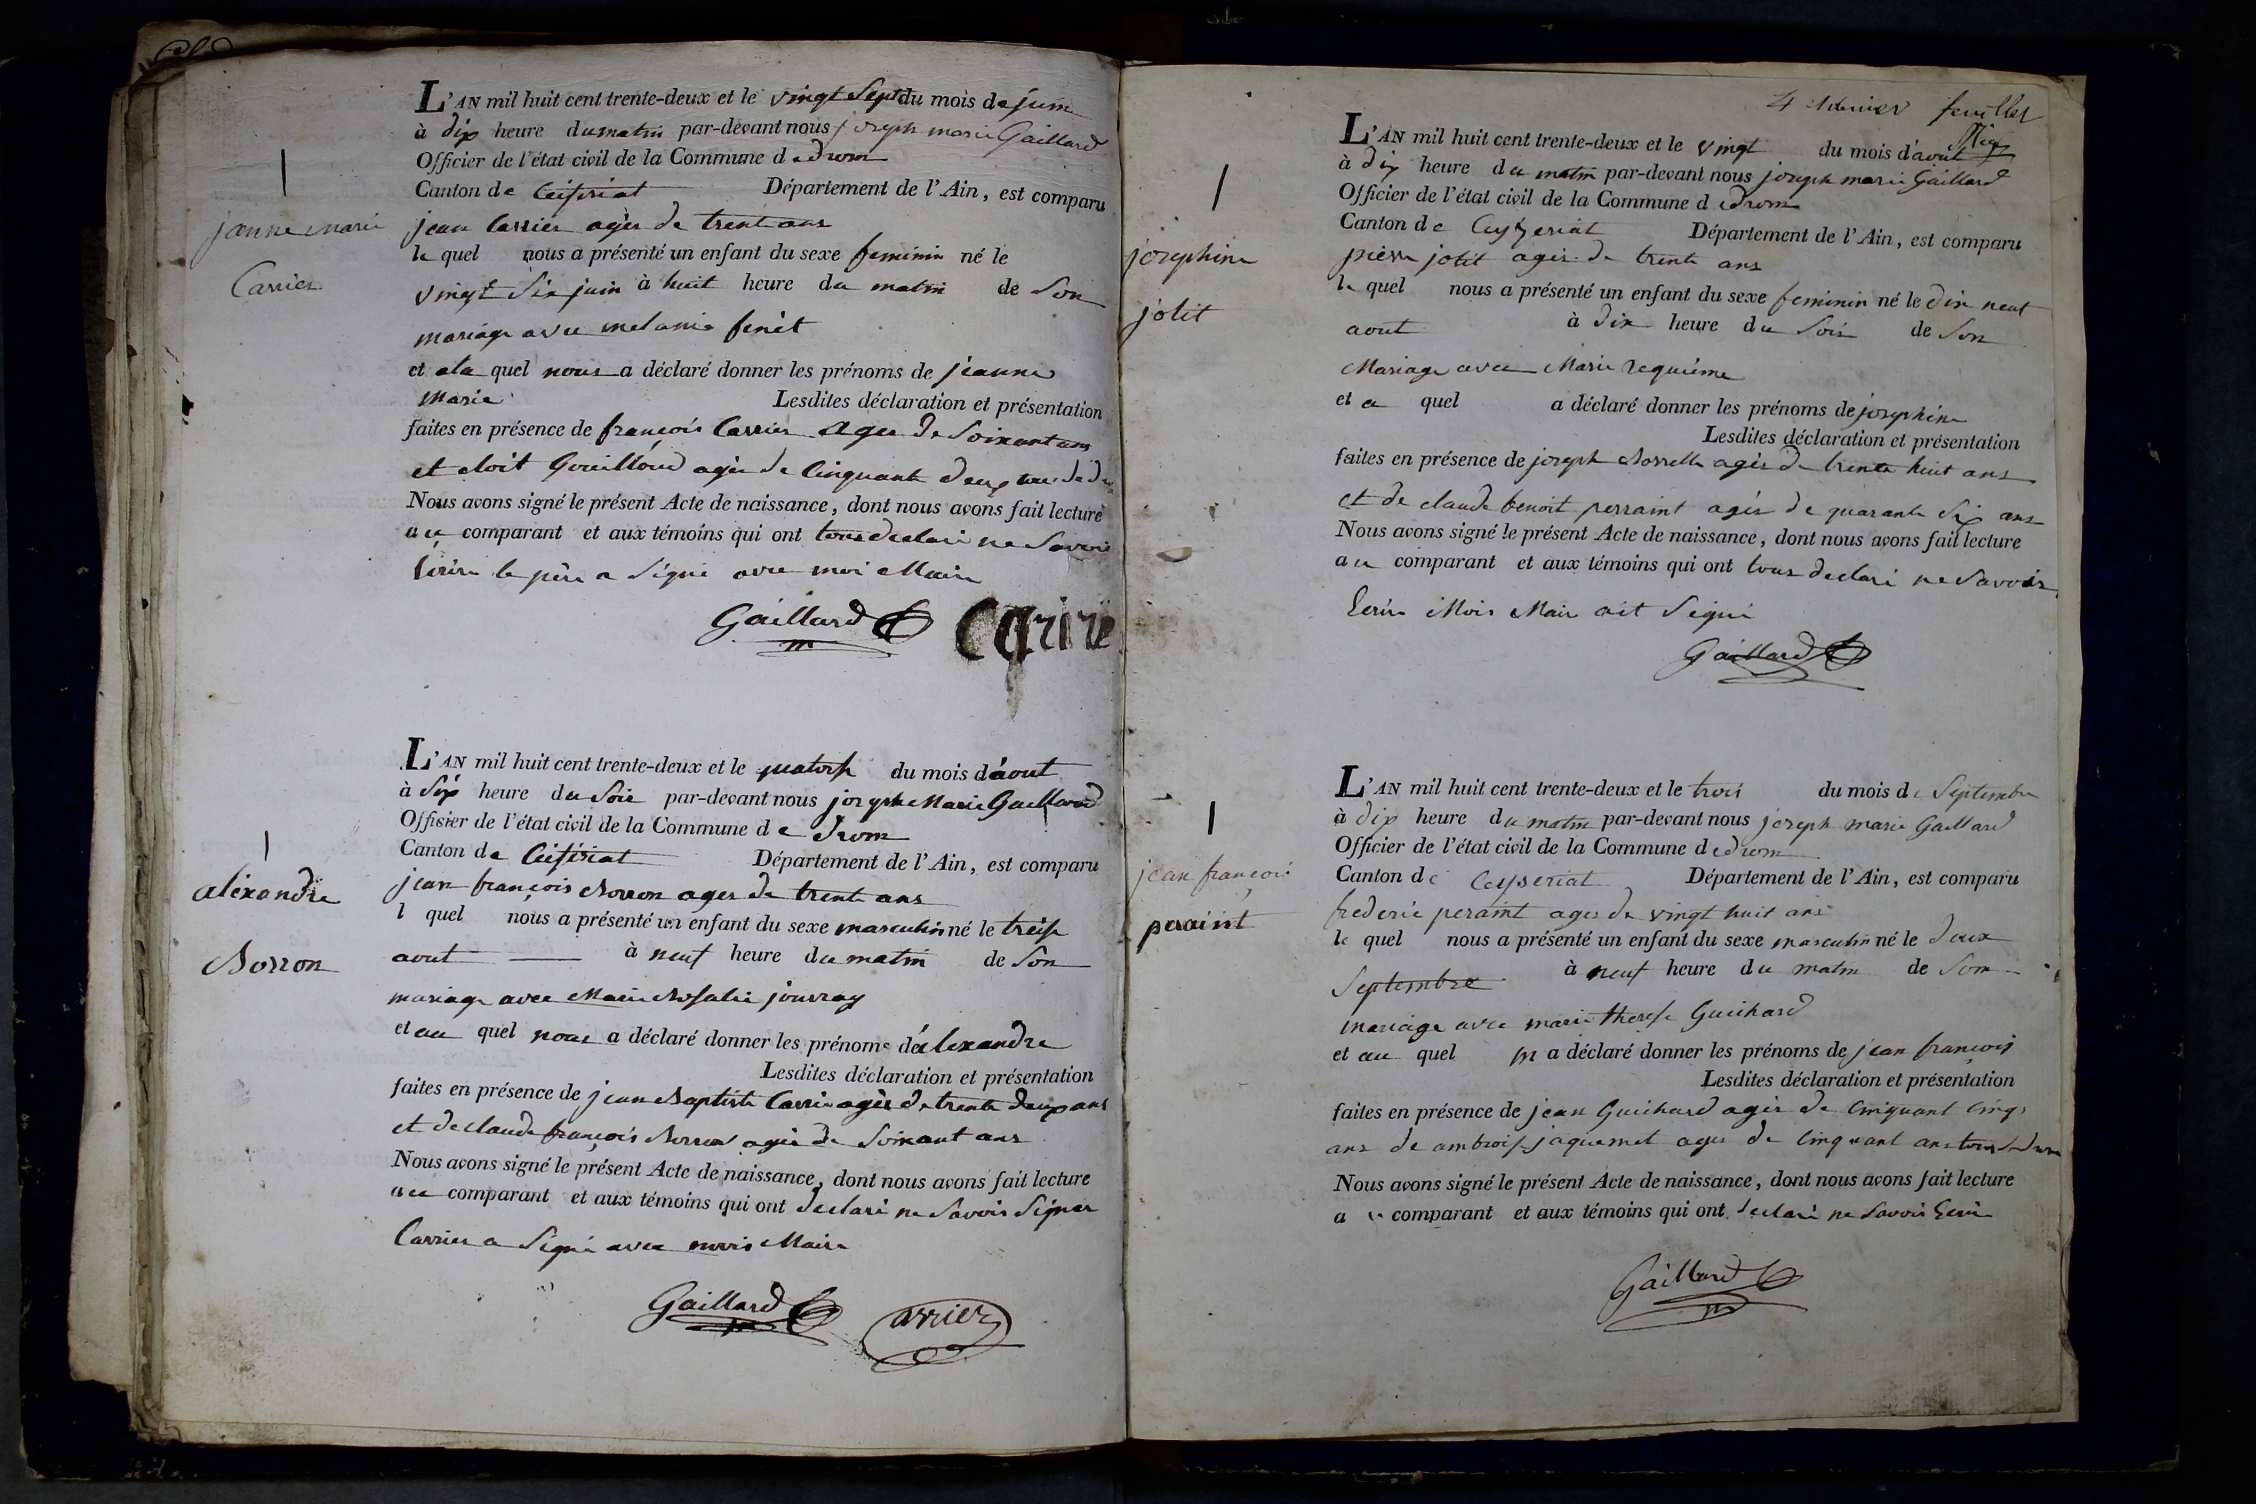 L'AN mil huit cent trente-deux et le vingt Sept du mois de juin
à dix heure du matin par-devant nous joseph marie Gaillard
Officier de l'état civil de la Commune de drom
Canton de Céiseriat Département de l'Ain, est comparu
jeanne Marie
Carrier
jean Carrier agés de trent ans
le quel nous a présenté un enfant du sexe feminin né le
vingt Six juin à huit heure du matin de Son
mariage avec melanie ferrèt
et ala quel nous a déclaré donner les prénoms de jeanne
Marie Lesdites déclaration et présentation
faites en présence de françois Carrier agés de Soixant ans
et Gouilloud agés de Cinquant deux
Nous avons signé le présent Acte de naissance, dont nous avons fait lecture
au comparant et aux témoins qui ont tous declaré ne Savoir
Ecrire le père a Signé avec moi Maire
Gaillard Carirë
L'AN mil huit cent trente-deux et le quatorse du mois d'aout
à Six heure du Soir par-devant nous joseph Marie Gaillard
Officier de l'état civil de la Commune de drom
Canton de Céisériat Département de l'Ain, est comparu
aléxandre
Morron
jean françois Morron agés de trente ans
l quel nous a présenté un enfant du sexe masculin né le treise
aout à neuf heure du matin de Son
mariage avec Marie Rosalie jouvray
et au quel nous a déclaré donner les prénoms d'aléxandre
Lesdites déclaration et présentation
faites en présence de jean Baptiste Carrier agès de trente deux ans
et de claude françois Morron agés de Soixant ans
Nous avons signé le présent Acte de naissance, dont nous avons fait lecture
au comparant et aux témoins qui ont declaré ne Savoir Signer
Carrier a Signé avec mois Maire
Gaillard Carrier
4 Dernier feuillet
L'AN mil huit cent trente-deux et le vingt du mois d'aout
à dix heure du matin par-devant nous joseph marie Gaillard
Officier de l'état civil de la Commune de drom
Canton de Ceyzeriat Département de l'Ain, est comparu
josephine
jolit
pierre jolit agés de trente ans
le quel nous a présenté un enfant du sexe feminin né le dix neuf
aout à dix heure du Soir de Son
Mariage avec Marie requième
et a quel a déclaré donner les prénoms de josephine
Lesdites déclaration et présentation
faites en présence de joseph agés de trente huit ans
et de claude benoit perraint agés de quarante Six ans
Nous avons signé le présent Acte de naissance, dont nous avons fait lecture
au comparant et aux témoins qui ont tous declaré ne Savoir
Ecrire Mois Maire ait Signé
Gaillard
L'AN mil huit cent trente-deux et le trois du mois de Septembre
à dix heure du matin par-devant nous joseph marie Gaillard
Officier de l'état civil de la Commune de drom
Canton de Ceyseriat Département de l'Ain, est comparu
jean françois
peraint
frederic peraint agés de vingt huit ans
le quel nous a présenté un enfant du sexe masculin né le deux
Septembre à neuf heure du matin de Son
mariage avec marie therese Guichard
et au quel a déclaré donner les prénoms de jean françois
Lesdites déclaration et présentation
faites en présence de jean Guichard agés de Cinquant Cinq
ans de ambroise jaquemet agés de Cinquant ans
Nous avons signé le présent Acte de naissance, dont nous avons fait lecture
au comparant et aux témoins qui ont declaré ne Savoir Ecrire
Gaillard